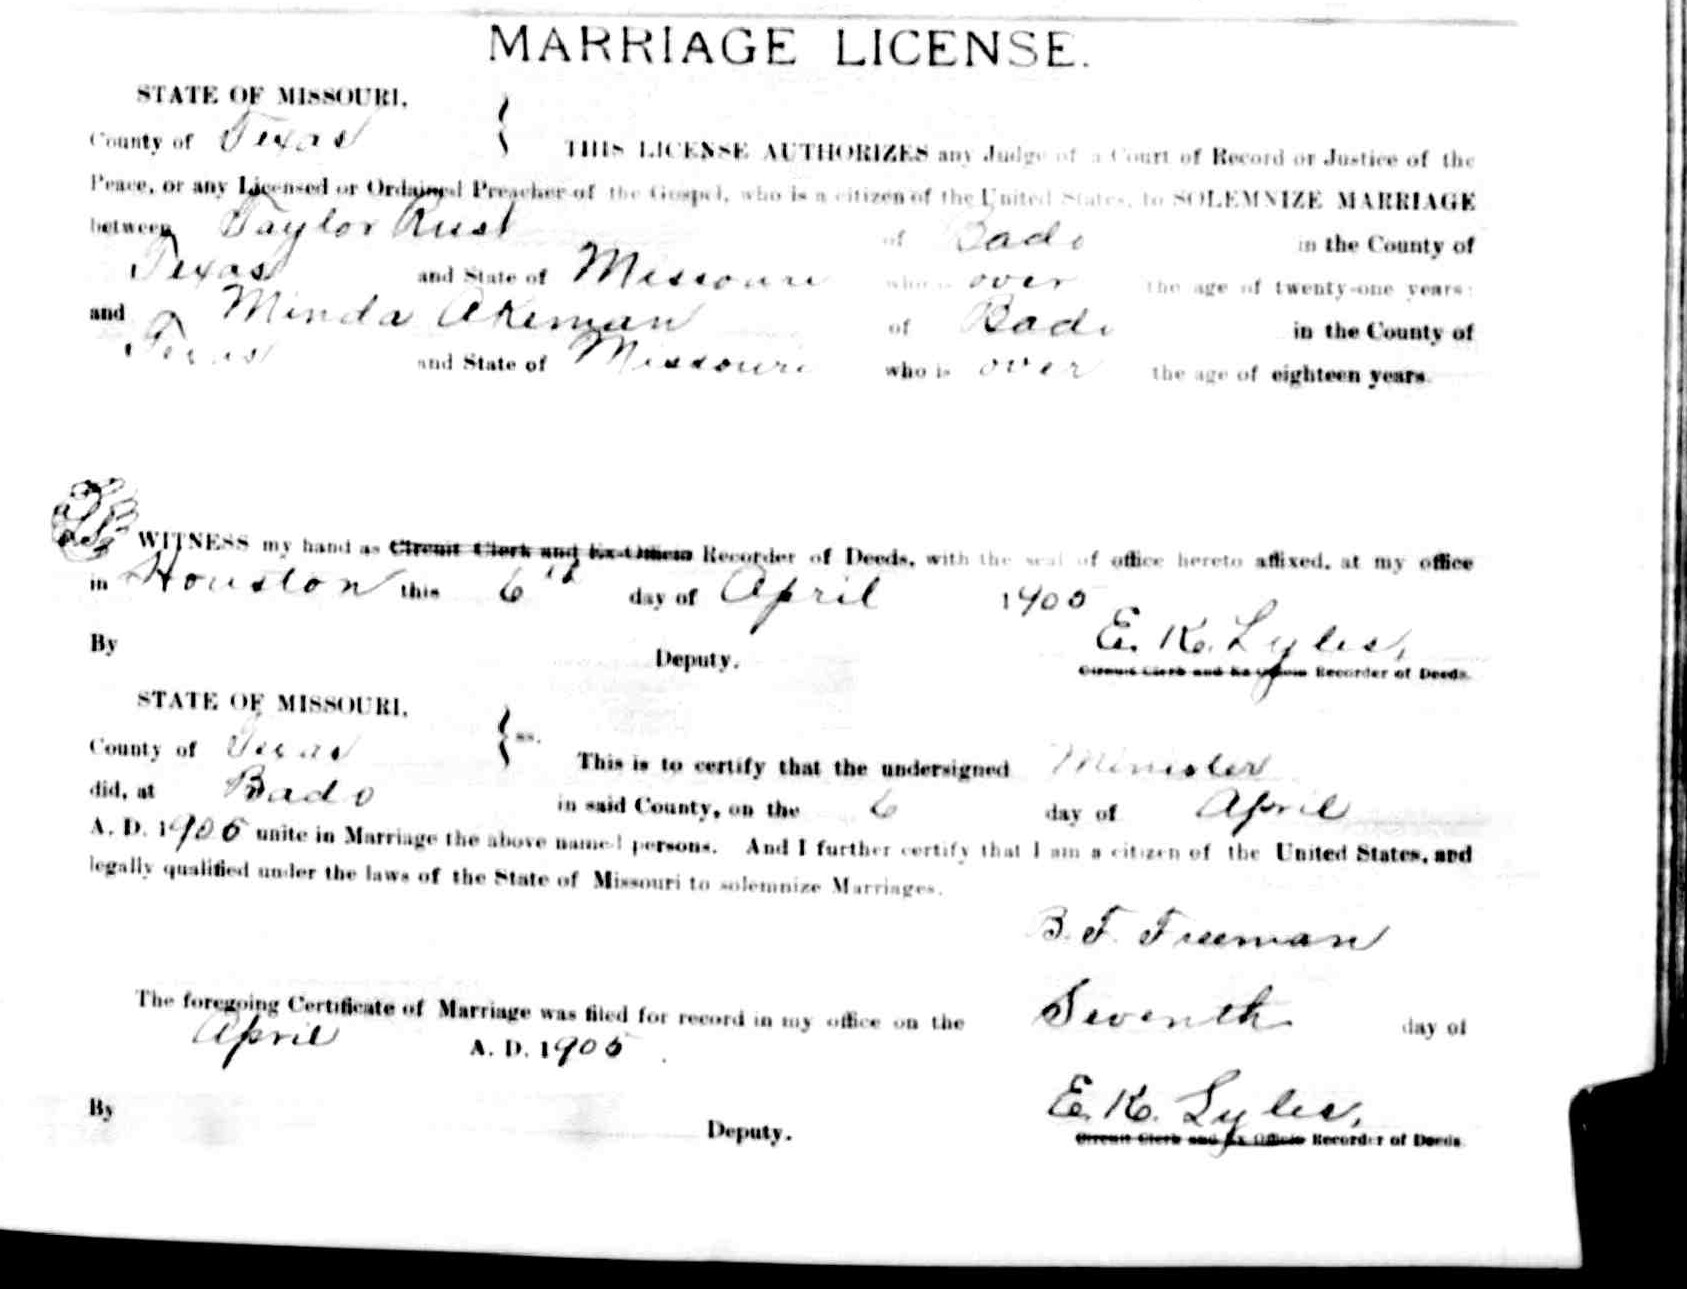 MARRIAGE LICENSE.
STATE OF MISSOURI,
County of Texas
THIS LICENSE AUTHORIZES any Judge of a Court of Record or Justice of the
Peace, or any Licensed or Ordained Preacher of the Gospel, who is a citizen of the United States, to SOLEMNIZE MARRIAGE
between Taylor Rust of Bado in the County of
Texas and State of Missouri who is over the age of twenty-one years;
and Minda Akeman of Bado in the County of
Texas and State of Missouri who is over the age of eighteen years.
WITNESS my hand as Circuit Clerk and Ex-Officio Recorder of Deeds, with the seal of office hereto affixed, at my office
in Houston this 6th day of April 1905
E. K. Lyles,
By Deputy.
Circuit Clerk and Ex Officio Recorder of Deeds.
STATE OF MISSOURI,
County of Texas ss.
This is to certify that the undersigned Minister
did, at Bado in said County, on the 6 day of April
A. D. 1905 unite in Marriage the above named persons. And I further certify that I am a citizen of the United States, and
legally qualified under the laws of the State of Missouri to solemnize Marriages.
B. F. Freeman
The foregoing Certificate of Marriage was filed for record in my office on the Seventh day of
April A. D. 1905.
E. K. Lyles,
By Deputy.
Circuit Clerk and Ex Officio Recorder of Deeds